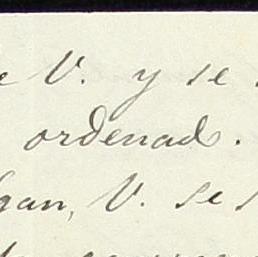 V. y se
ordenad.
gan, V. se